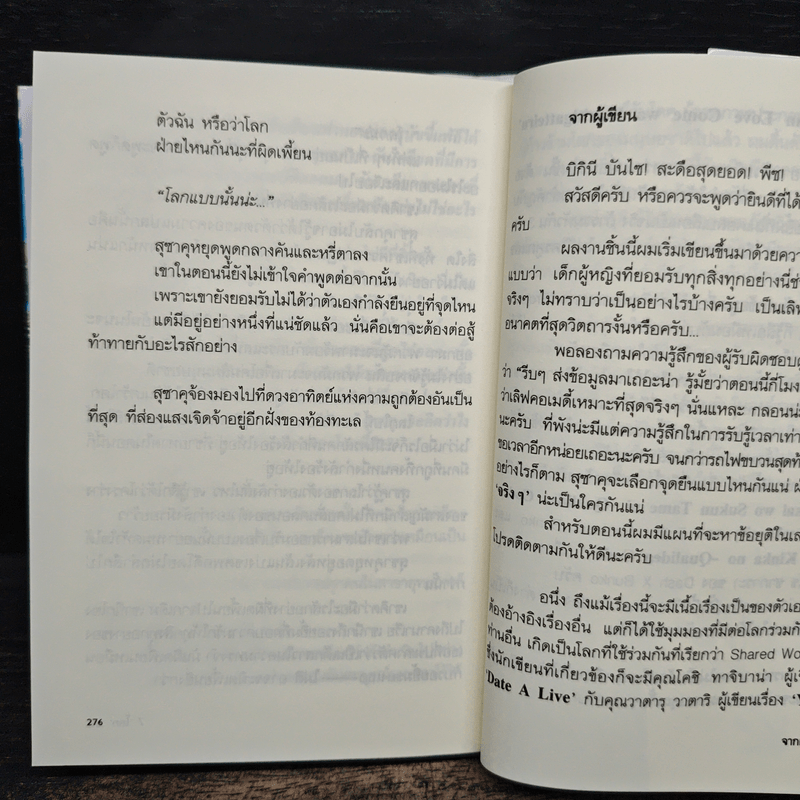 ตัวฉัน หรือว่าโลก
ฝ่ายไหนกันนะที่ผิดเพี้ยน
“โลกแบบนั้นน่ะ...”
สุซาคุหยุดพูดกลางคันและหรี่ตาลง
เขาในตอนนี้ยังไม่เข้าใจคำพูดต่อจากนั้น
เพราะเขายังยอมรับไม่ได้ว่าตัวเองกำลังยืนอยู่ที่จุดไหน
แต่มีอยู่อย่างหนึ่งที่แน่ชัดแล้ว นั่นคือเขาจะต้องต่อสู้
ท้าทายกับอะไรสักอย่าง
สุซาคุจ้องมองไปที่ดวงอาทิตย์แห่งความถูกต้องอันเป็น
ที่สุด ที่ส่องแสงเจิดจ้าอยู่อีกฝั่งของท้องทะเล
276
จากผู้เขียน
บิกินี บันไซ! สะดือสุดยอด! พีซ!
สวัสดีครับ หรือควรจะพูดว่ายินดีที่ได้
ครับ
ผลงานชิ้นนี้ผมเริ่มเขียนขึ้นมาด้วยควา
แบบว่า เด็กผู้หญิงที่ยอมรับทุกสิ่งทุกอย่างนี่ช่
จริงๆ ไม่ทราบว่าเป็นอย่างไรบ้างครับ เป็นเลิฟ
อนาคตที่สุดวิตถารงั้นหรือครับ...
พอลองถามความรู้สึกของผู้รับผิดชอบดู
ว่า “รีบๆ ส่งข้อมูลมาเถอะน่า รู้มั้ยว่าตอนนี้กี่โมง
ว่าเลิฟคอเมดี้เหมาะที่สุดจริงๆ นั่นแหละ กลอนน่ะ
นะครับ ที่พังน่ะมีแต่ความรู้สึกในการรับรู้เวลาเท่า
ขอเวลาอีกหน่อยเถอะนะครับ จนกว่ารถไฟขบวนสุดท้
อย่างไรก็ตาม สุซาคุจะเลือกจุดยืนแบบไหนกันแน่
‘จริงๆ’ น่ะเป็นใครกันแน่
สำหรับตอนนี้ผมมีแผนที่จะหาข้อยุติในเล
โปรดติดตามกันให้ดีนะครับ
อนึ่ง ถึงแม้เรื่องนี้จะมีเนื้อเรื่องเป็นของตัวเอ
ต้องอ้างอิงเรื่องอื่น แต่ก็ได้ใช้มุมมองที่มีต่อโลกร่วมกั
ท่านอื่น เกิดเป็นโลกที่ใช้ร่วมกันที่เรียกว่า Shared Wo
ซึ่งนักเขียนที่เกี่ยวข้องก็จะมีคุณโคชิ ทาจิบาน่า ผู้เ
‘Date A Live’ กับคุณวาตารุ วาตาริ ผู้เขียนเรื่อง ‘Y
จาก